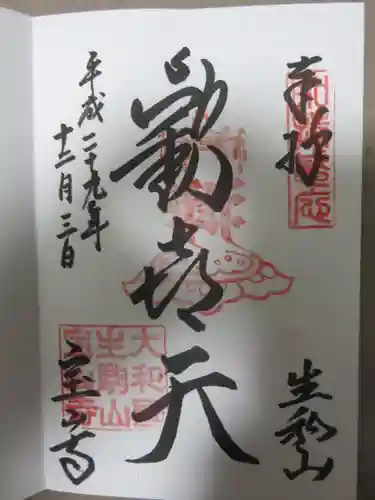 奉拝
生駒山
歡喜天
平成二十九年
十二月三日
宝山寺
大和國
生駒山
寶山寺